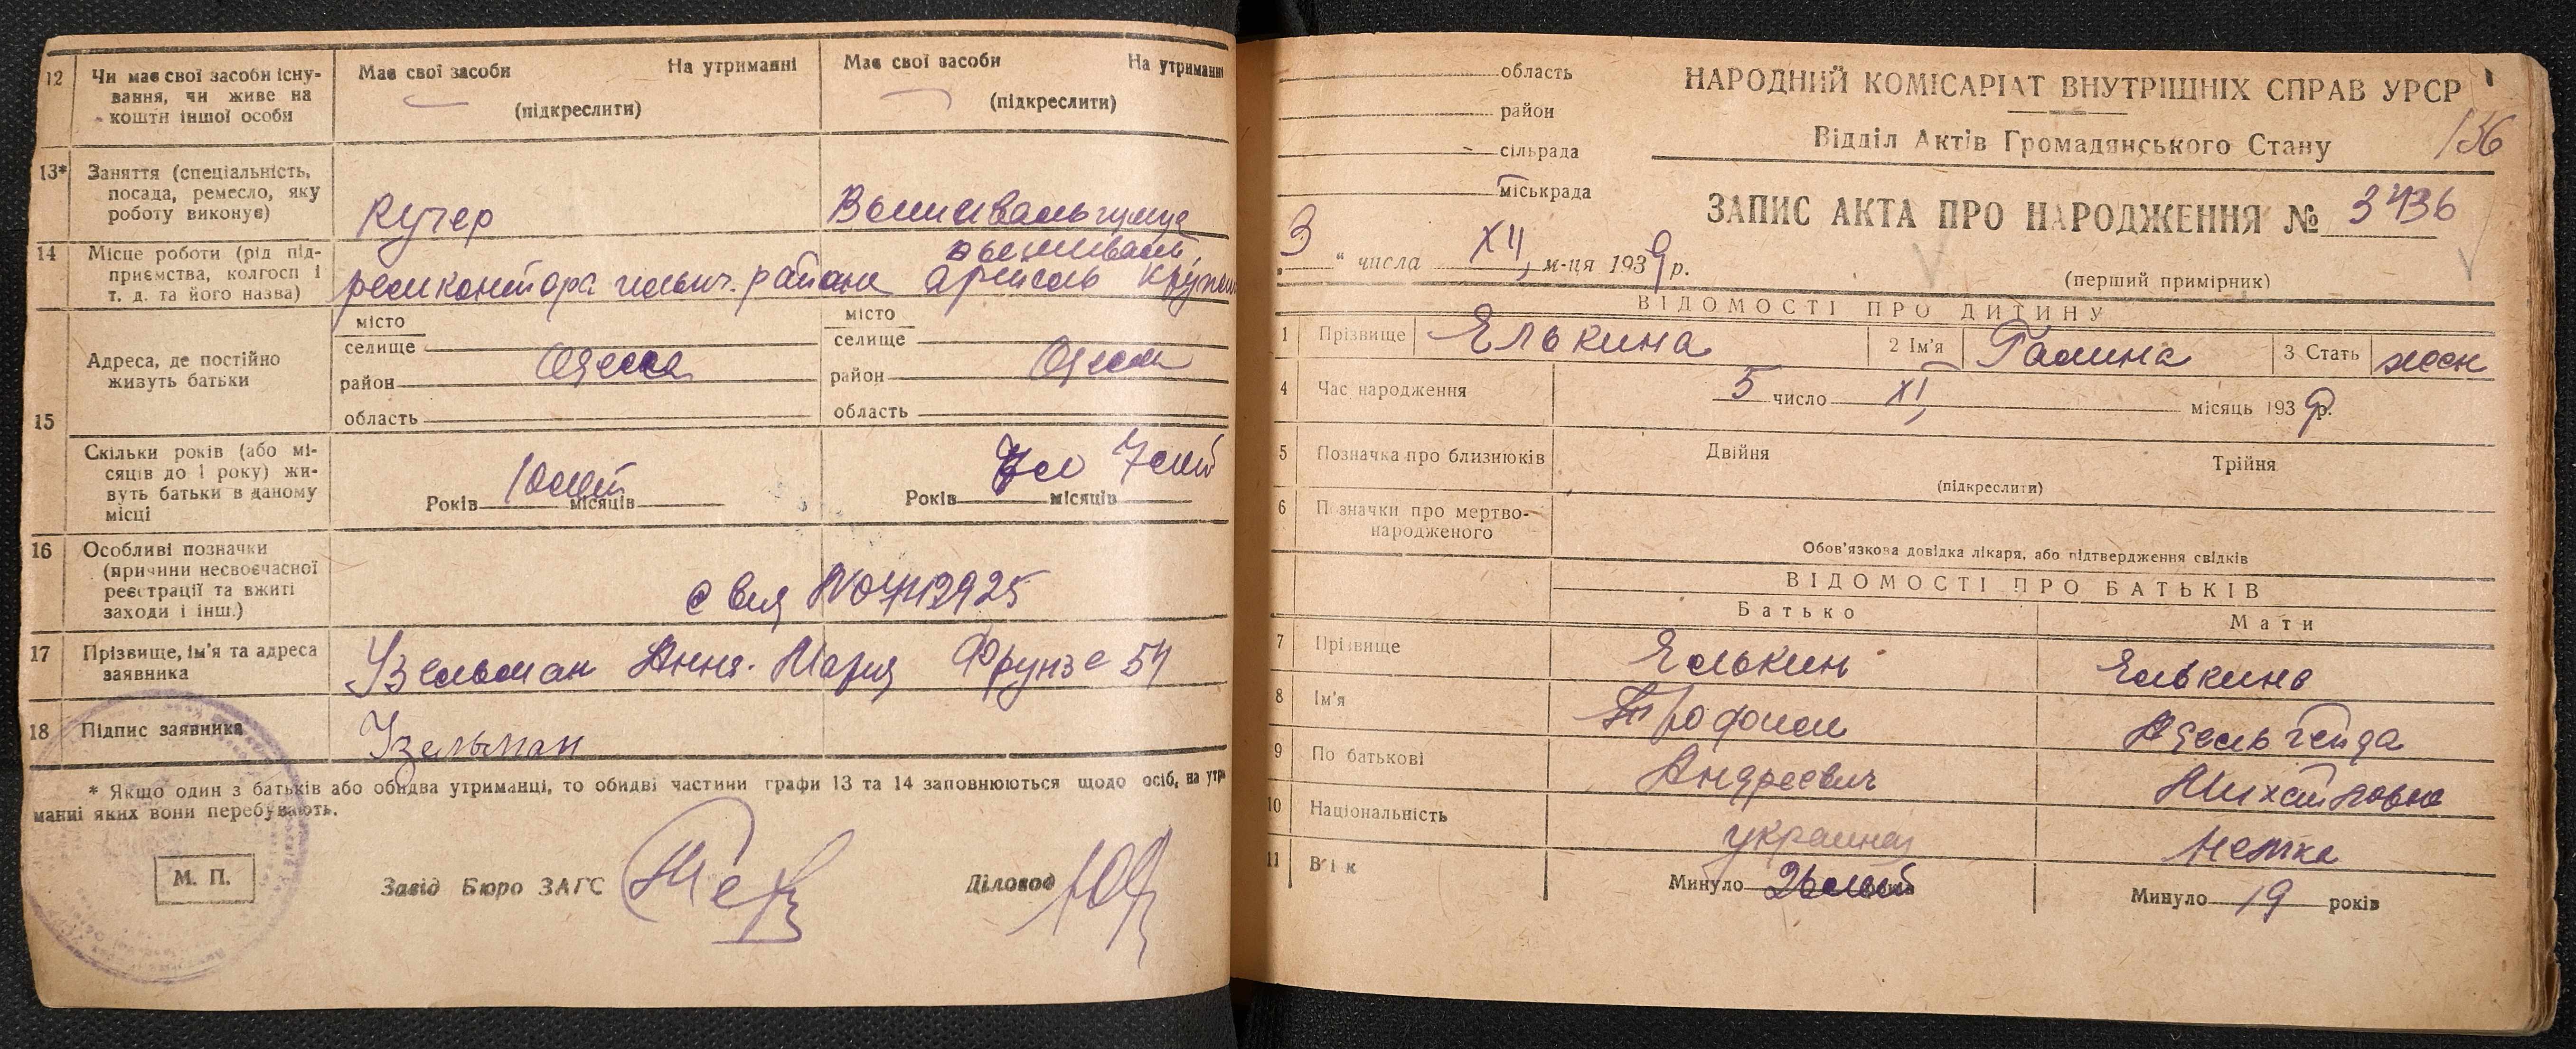 12 Чи має свої засоби існу-
вання, чи живе на
кошти іншої особи
Має свої засоби На утриманні
(підкреслити)
Має свої засоби На утриманні
(підкреслити)
13* Заняття (спеціальність,
посада, ремесло, яку
роботу виконує)
Кучер
Вышивальщица
14 Місце роботи (рід під-
приємства, колгосп і
т. д. та його назва)
ремконтора ильич. района
вышиваль.
артель
15 Адреса, де постійно
живуть батьки
місто
селище
район
область
Одесса
місто
селище
район
область
Одесса
Скільки років (або мі-
сяців до 1 року) жи-
вуть батьки в даному
місці
Років 10 лет місяців
Років 7 лет місяців
16 Особливі позначки
(причини несвоєчасної
реєстрації та вжиті
заходи і інш.)
17 Прізвище, ім'я та адреса
заявника
Узельман Анна-Мария Фрунзе 54
18 Підпис заявника
Узельман
* Якщо один з батьків або обидва утриманці, то обидві частини графи 13 та 14 заповнюються щодо осіб, на утри
манні яких вони перебувають.
М. П.
Завід Бюро ЗАГС
Діловод
область
район
сільрада
міськрада
НАРОДНИЙ КОМІСАРІАТ ВНУТРІШНІХ СПРАВ УРСР
136
Відділ Актів Громадянського Стану
ЗАПИС АКТА ПРО НАРОДЖЕННЯ № 3436
„ 3 " числа XII м-ця 1939 р.
(перший примірник)
ВІДОМОСТІ ПРО ДИТИНУ
1 Прізвище Елькина 2 Ім'я Галина 3 Стать жен
4 Час народження 5 число XI місяць 1939 р.
5 Позначка про близнюків Двійня Трійня
(підкреслити)
6 Позначки про мертво-
народженого
Обов'язкова довідка лікаря, або підтвердження свідків
ВІДОМОСТІ ПРО БАТЬКІВ
Батько Мати
7 Прізвище Елькин Елькина
8 Ім'я Трофим
9 По батькові Андреевич Михайловна
10 Національність немка
11 Вік Минуло 26 лет років Минуло 19 років